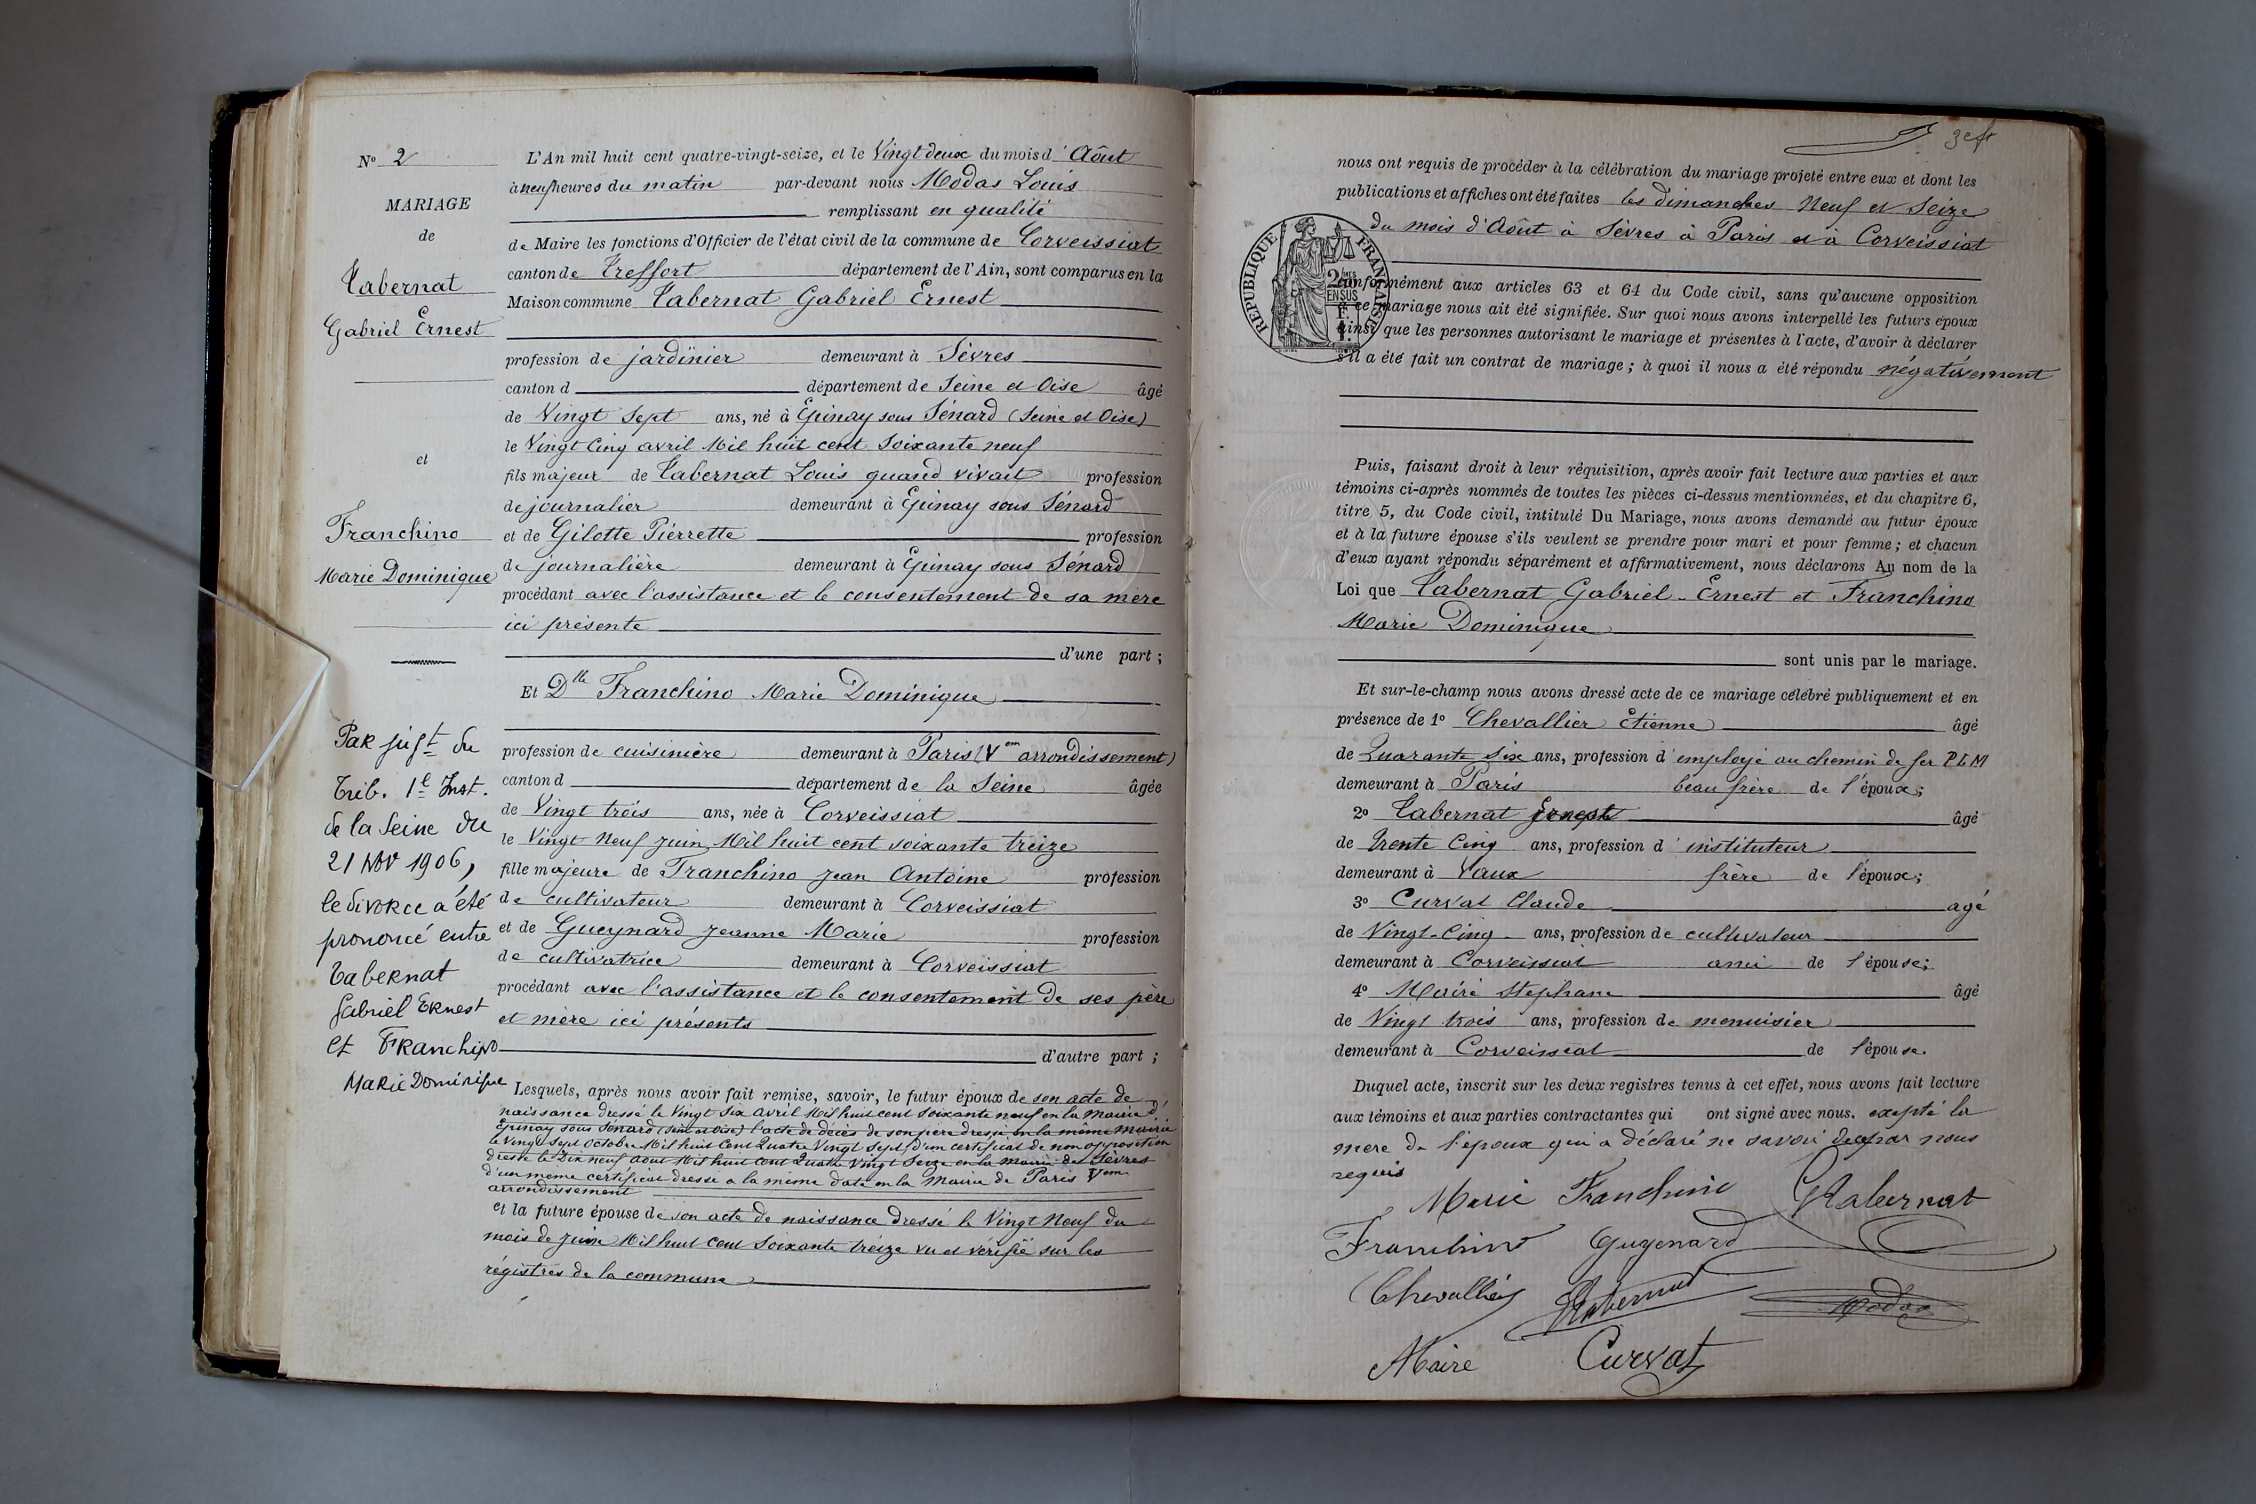 N° 2
MARIAGE
de
Tabernat
Gabriel Ernest
et
Franchino
Marie Dominique
Par jugt du
Trib. 1e Inst.
de la Seine du
21 Nov 1906,
le divorce a été
prononcé entre
Tabernat
Gabriel Ernest
et Franchino
Marie Dominique
L'An mil huit cent quatre-vingt-seize, et le Vingt deux du mois d' Aôut
à neuf heures du matin par-devant nous Modas Louis
remplissant en qualité
de Maire les fonctions d'Officier de l'état civil de la commune de Corveissiat
canton de Treffort département de l'Ain, sont comparus en la
Maison commune Tabernat Gabriel Ernest
profession de jardinier demeurant à Sèvres
canton d département de Seine et Oise âgé
de Vingt Sept ans, né à Epinay sous Sénard (Seine et Oise)
le Vingt Cinq avril Mil huit cent Soixante neuf
fils majeur de Tabernat Louis quand vivait profession
de journalier demeurant à Epinay sous Sénard
et de Gilotte Pierrette profession
de journalière demeurant à Epinay sous Sénard
procédant avec l'assistance et le consentement de sa mère
ici présente
d'une part ;
Et Dlle Franchino Marie Dominique
profession de cuisinière demeurant à Paris (Vem arrondissement)
canton d département de la Seine âgée
de Vingt trois ans, née à Corveissiat
le Vingt Neuf juin Mil huit cent soixante treize
fille majeure de Franchino Jean Antoine profession
de cultivateur demeurant à Corveissiat
et de Gueynard Jeanne Marie profession
de cultivatrice demeurant à Corveissiat
procédant avec l'assistance et le consentement de ses père
et mère ici présents
d'autre part ;
Lesquels, après nous avoir fait remise, savoir, le futur époux de son acte de
naissance dressé le Vingt Six avril Mil huit cent Soixante neuf en la Mairie d'
Epinay sous Sénard (Seine et Oise) l'acte de décès de son père dressé en la même Mairie
le Vingt Sept Octobre Mil huit Cent Quatre Vingt Sept, d'un certificat de non opposition
dressé le Dix neuf aout Mil huit cent Quatre Vingt Seize en la mairie de Sèvres
d'un même certificat dressé a la même date en la Mairie de Paris Vem
arrondissement
et la future épouse de son acte de naissance dressé le Vingt Neuf du
mois de Juin Mil huit cent Soixante treize vu et vérifié sur les
régistres de la commune
nous ont requis de procéder à la célébration du mariage projeté entre eux et dont les
publications et affiches ont été faites les dimanches Neuf et Seize
du mois d'Aôut à Sèvres à Paris et à Corveissiat
RÉPUBLIQUE FRANÇAISE
conformément aux articles 63 et 64 du Code civil, sans qu'aucune opposition
à ce mariage nous ait été signifiée. Sur quoi nous avons interpellé les futurs époux
ainsi que les personnes autorisant le mariage et présentes à l'acte, d'avoir à déclarer
s'il a été fait un contrat de mariage ; à quoi il nous a été répondu négativement
Puis, faisant droit à leur réquisition, après avoir fait lecture aux parties et aux
témoins ci-après nommés de toutes les pièces ci-dessus mentionnées, et du chapitre 6,
titre 5, du Code civil, intitulé Du Mariage, nous avons demandé au futur époux
et à la future épouse s'ils veulent se prendre pour mari et pour femme ; et chacun
d'eux ayant répondu séparément et affirmativement, nous déclarons Au nom de la
Loi que Tabernat Gabriel-Ernest et Franchino
Marie Dominique
sont unis par le mariage.
Et sur-le-champ nous avons dressé acte de ce mariage célébré publiquement et en
présence de 1° Chevallier Etienne âgé
de Quarante Six ans, profession d'employé au chemin de fer PLM
demeurant à Paris beau frère de l'époux;
2° Tabernat Joseph âgé
de Trente Cinq ans, profession d'instituteur
demeurant à Vaux frère de l'époux;
3° Curvat Claude agé
de Vingt-Cinq ans, profession de cultivateur
demeurant à Corveissiat ami de l'épouse;
4° Maire Stephane âgé
de Vingt trois ans, profession de menuisier
demeurant à Corveissiat de l'épouse.
Duquel acte, inscrit sur les deux registres tenus à cet effet, nous avons fait lecture
aux témoins et aux parties contractantes qui ont signé avec nous. exepté la
mere de l'epoux qui a déclaré ne savoir de par nous
requis
Marie Franchino GTabernat
Franchino Guyenard
Chevallier Tabernat Modas
Maire Curvat